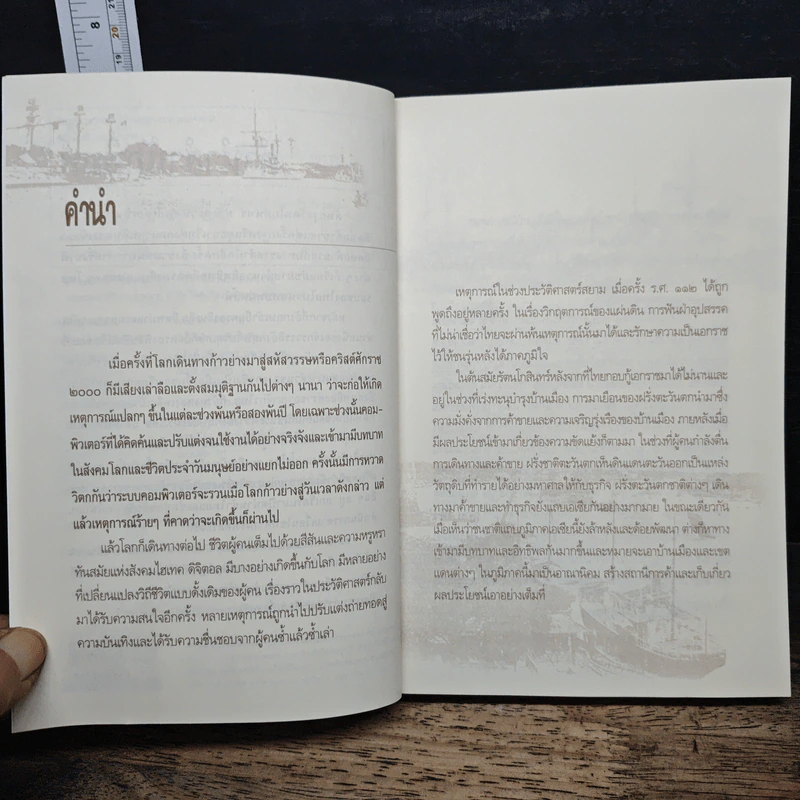 8
20
19
คำนำ
เมื่อครั้งที่โลกเดินทางก้าวย่างมาสู่สหัสวรรษหรือคริสต์ศักราช
๒๐๐๐ ก็มีเสียงเล่าลือและตั้งสมมุติฐานกันไปต่างๆ นานา ว่าจะก่อให้เกิด
เหตุการณ์แปลกๆ ขึ้นในแต่ละช่วงพันหรือสองพันปี โดยเฉพาะช่วงนั้นคอม-
พิวเตอร์ที่ได้คิดค้นและปรับแต่งจนใช้งานได้อย่างจริงจังและเข้ามามีบทบาท
ในสังคมโลกและชีวิตประจำวันมนุษย์อย่างแยกไม่ออก ครั้งนั้นมีการหวาด
วิตกกันว่าระบบคอมพิวเตอร์จะรวนเมื่อโลกก้าวย่างสู่วันเวลาดังกล่าว แต่
แล้วเหตุการณ์ร้ายๆ ที่คาดว่าจะเกิดขึ้นก็ผ่านไป
แล้วโลกก็เดินทางต่อไป ชีวิตผู้คนเต็มไปด้วยสีสันและความหรูหรา
ทันสมัยแห่งสังคมไฮเทค ดิจิตอล มีบางอย่างเกิดขึ้นกับโลก มีหลายอย่าง
ที่เปลี่ยนแปลงวิถีชีวิตแบบดั้งเดิมของผู้คน เรื่องราวในประวัติศาสตร์กลับ
มาได้รับความสนใจอีกครั้ง หลายเหตุการณ์ถูกนำไปปรับแต่งถ่ายทอดสู่
ความบันเทิงและได้รับความชื่นชอบจากผู้คนซ้ำแล้วซ้ำเล่า
เหตุการณ์ในช่วงประวัติศาสตร์สยาม เมื่อครั้ง ร.ศ. ๑๑๒ ได้ถูก
พูดถึงอยู่หลายครั้ง ในเรื่องวิกฤตการณ์ของแผ่นดิน การฟันฝ่าอุปสรรค
ที่ไม่น่าเชื่อว่าไทยจะผ่านพ้นเหตุการณ์นั้นมาได้และรักษาความเป็นเอกราช
ไว้ให้ชนรุ่นหลังได้ภาคภูมิใจ
ในต้นสมัยรัตนโกสินทร์หลังจากที่ไทยกอบกู้เอกราชมาได้ไม่นานและ
อยู่ในช่วงที่เร่งทะนุบำรุงบ้านเมือง การมาเยือนของฝรั่งตะวันตกนำมาซึ่ง
ความมั่งคั่งจากการค้าขายและความเจริญรุ่งเรืองของบ้านเมือง ภายหลังเมื่อ
มีผลประโยชน์เข้ามาเกี่ยวข้องความขัดแย้งก็ตามมา ในช่วงที่ผู้คนกำลังตื่น
การเดินทางและค้าขาย ฝรั่งชาติตะวันตกเห็นดินแดนตะวันออกเป็นแหล่ง
วัตถุดิบที่ทำรายได้อย่างมหาศาลให้กับธุรกิจ ฝรั่งตะวันตกชาติต่างๆ เดิน
ทางมาค้าขายและทำธุรกิจยังแถบเอเซียกันอย่างมากมาย ในขณะเดียวกัน
เมื่อเห็นว่าชนชาติแถบภูมิภาคเอเซียนี้ยังล้าหลังและด้อยพัฒนา ต่างก็หาทาง
เข้ามามีบทบาทและอิทธิพลกันมากขึ้นและหมายจะเอาบ้านเมืองและเขต
แดนต่างๆ ในภูมิภาคนี้มาเป็นอาณานิคม สร้างสถานีการค้าและเก็บเกี่ยว
ผลประโยชน์เอาอย่างเต็มที่